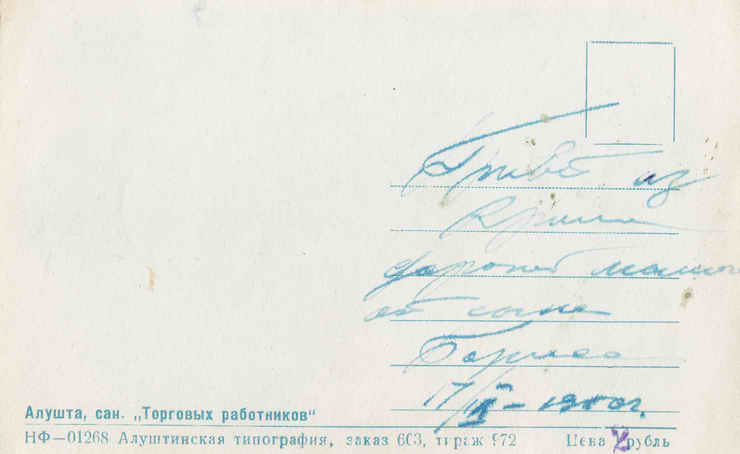 Привет из
Крыма
дорогой мамочке
от сына
Бориса
Алушта, сан. „Торговых работников“
НФ—01268 Алуштинская типография, заказ 603, тираж 972 Цена рубль